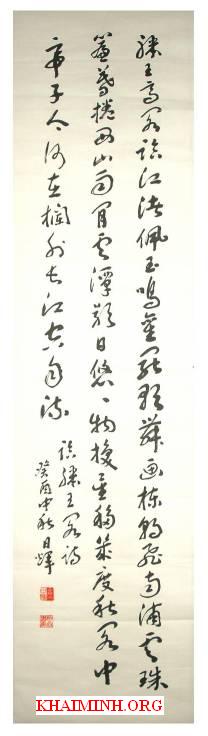 滕王高閣臨江渚佩玉鳴鸞罷歌舞画棟朝飛南浦雲珠
簾暮捲西山雨閒雲潭影日悠々物換星移幾度秋閣中
帝子今何在檻外長江空自流
滕王閣詩
癸酉中秋日輝
KHAIMINH.ORG